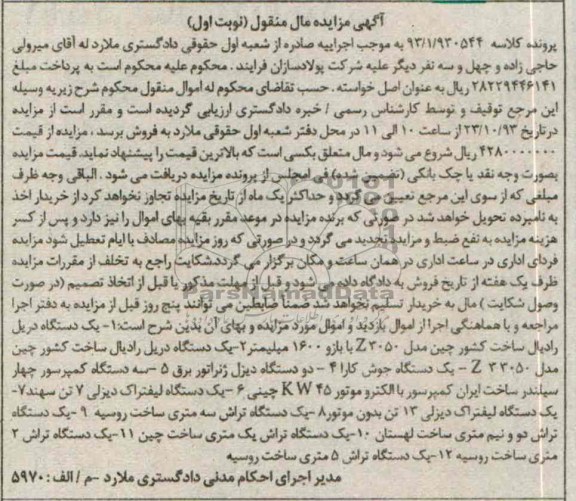 آگهی مزایده مال منقول (نوبت اول)
پرونده کلاسه ۹۳/۱/۹۳۰۵۴۴ به موجب اجراییه صادره از شعبه اول حقوقی دادگستری ملارد له آقای میرولی
حاجی زاده و چهل و سه نفر دیگر علیه شرکت پولادسازان فرایند. محکوم علیه محکوم است به پرداخت مبلغ
۲۸۲۲۹۴۴۶۱۴۱ ریال به عنوان اصل خواسته. حسب تقاضای محکوم له اموال منقول محکوم شرح زیر به وسیله
این مرجع توقیف و توسط کارشناس رسمی / خبره دادگستری ارزیابی گردیده است و مقرر است از مزایده
در تاریخ ۲۳/۱۰/۹۳ از ساعت ۱۰ الی ۱۱ در محل دفتر شعبه اول حقوقی ملارد به فروش برسد، مزایده از قیمت
۴۲۸۰۰۰۰۰۰۰ ریال شروع می شود و مال متعلق بکسی است که بالاترین قیمت را پیشنهاد نماید. قیمت مزایده
بصورت وجه نقد یا چک بانکی (تضمین شده) فی المجلس از برنده مزایده دریافت می شود. الباقی وجه ظرف
مبلغی که از سوی این مرجع تعیین می گردد و حداکثر یک ماه از تاریخ مزایده تجاوز نخواهد کرد از خریدار اخذ
به نامبرده تحویل خواهد شد در صورتی که برنده مزایده در موعد مقرر بقیه بهای اموال را نپردازد و پس از کسر
هزینه مزایده به نفع ضبط و مزایده تجدید می گردد و در صورتی که روز مزایده مصادف با ایام تعطیل شود مزایده
فردای اداری در ساعت اداری در همان ساعت و مکان برگزار می گردد شکایت راجع به تخلف از مقررات مزایده
ظرف یک هفته از تاریخ فروش به دادگاه داده می شود و قبل از مهلت مذکور یا قبل از اتخاذ تصمیم (در صورت
وصول شکایت) مال به خریدار تسلیم نخواهد شد ضمنا ضابطین می توانند پنج روز قبل از مزایده به دفتر اجرا
مراجعه و با هماهنگی اجرا از اموال بازدید و اموال مورد مزایده و بهای آن بدین شرح است: ۱- یک دستگاه دریل
رادیال ساخت کشور چین مدل Z۳۰۵۰ با بازو ۱۶۰۰ میلیمتر ۲- یک دستگاه دریل رادیال ساخت کشور چین
مدل Z ۳۰۵۰ ۳- یک دستگاه جوش کارا ۴- دو دستگاه دیزل ژنراتور برق ۵- سه دستگاه کمپرسور چهار
سیلندر ساخت ایران کمپرسور با الکترو موتور ۴۵ KW چینی ۶- یک دستگاه لیفتراک دیزلی ۷ تن سهند ۷-
یک دستگاه لیفتراک دیزلی ۱۳ تن بدون موتور ۸- یک دستگاه تراش سه متری ساخت روسیه ۹- یک دستگاه
تراش دو و نیم متری ساخت لهستان ۱۰- یک دستگاه تراش یک متری ساخت چین ۱۱- یک دستگاه تراش ۲
متری ساخت روسیه ۱۲- یک دستگاه تراش ۵ متری ساخت روسیه
مدیر اجرای احکام مدنی دادگستری ملارد - م / الف : ۵۹۷۰